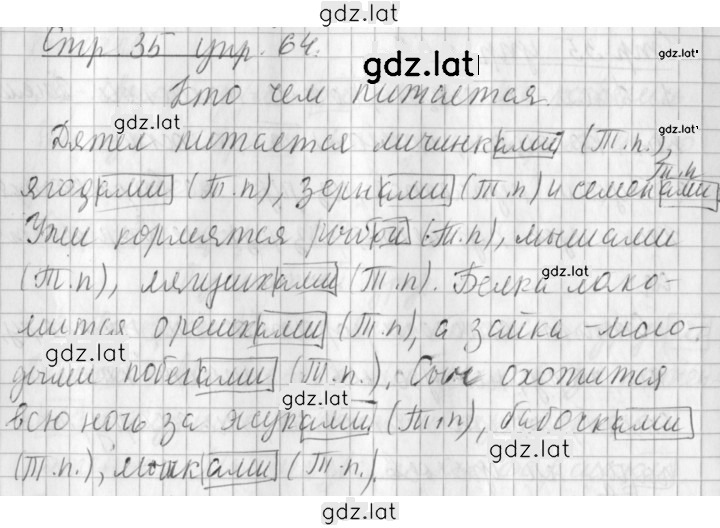 gdz.lat
Стр 35 упр. 64.
gdz.lat
gdz.lat
Кто чем питается.
gdz.lat
gdz.lat
Дятел питается личинками (Т.п.),
Т.п
ягодами (Т.п), зернами (Т.п) и семенами
Ужи кормятся рыбой (Т.п), мышами
gdz.lat
(Т.п), лягушками (Т.п). Белка лако-
мится орешками (Т.п), а зайка - моло-
gdz.lat
дыми побегами (Т.п.). Сыч охотится
gdz.lat
всю ночь за жуками (Т.п), бабочками
gdz.lat
(Т.п.), мышками (Т.п.).
gdz.lat